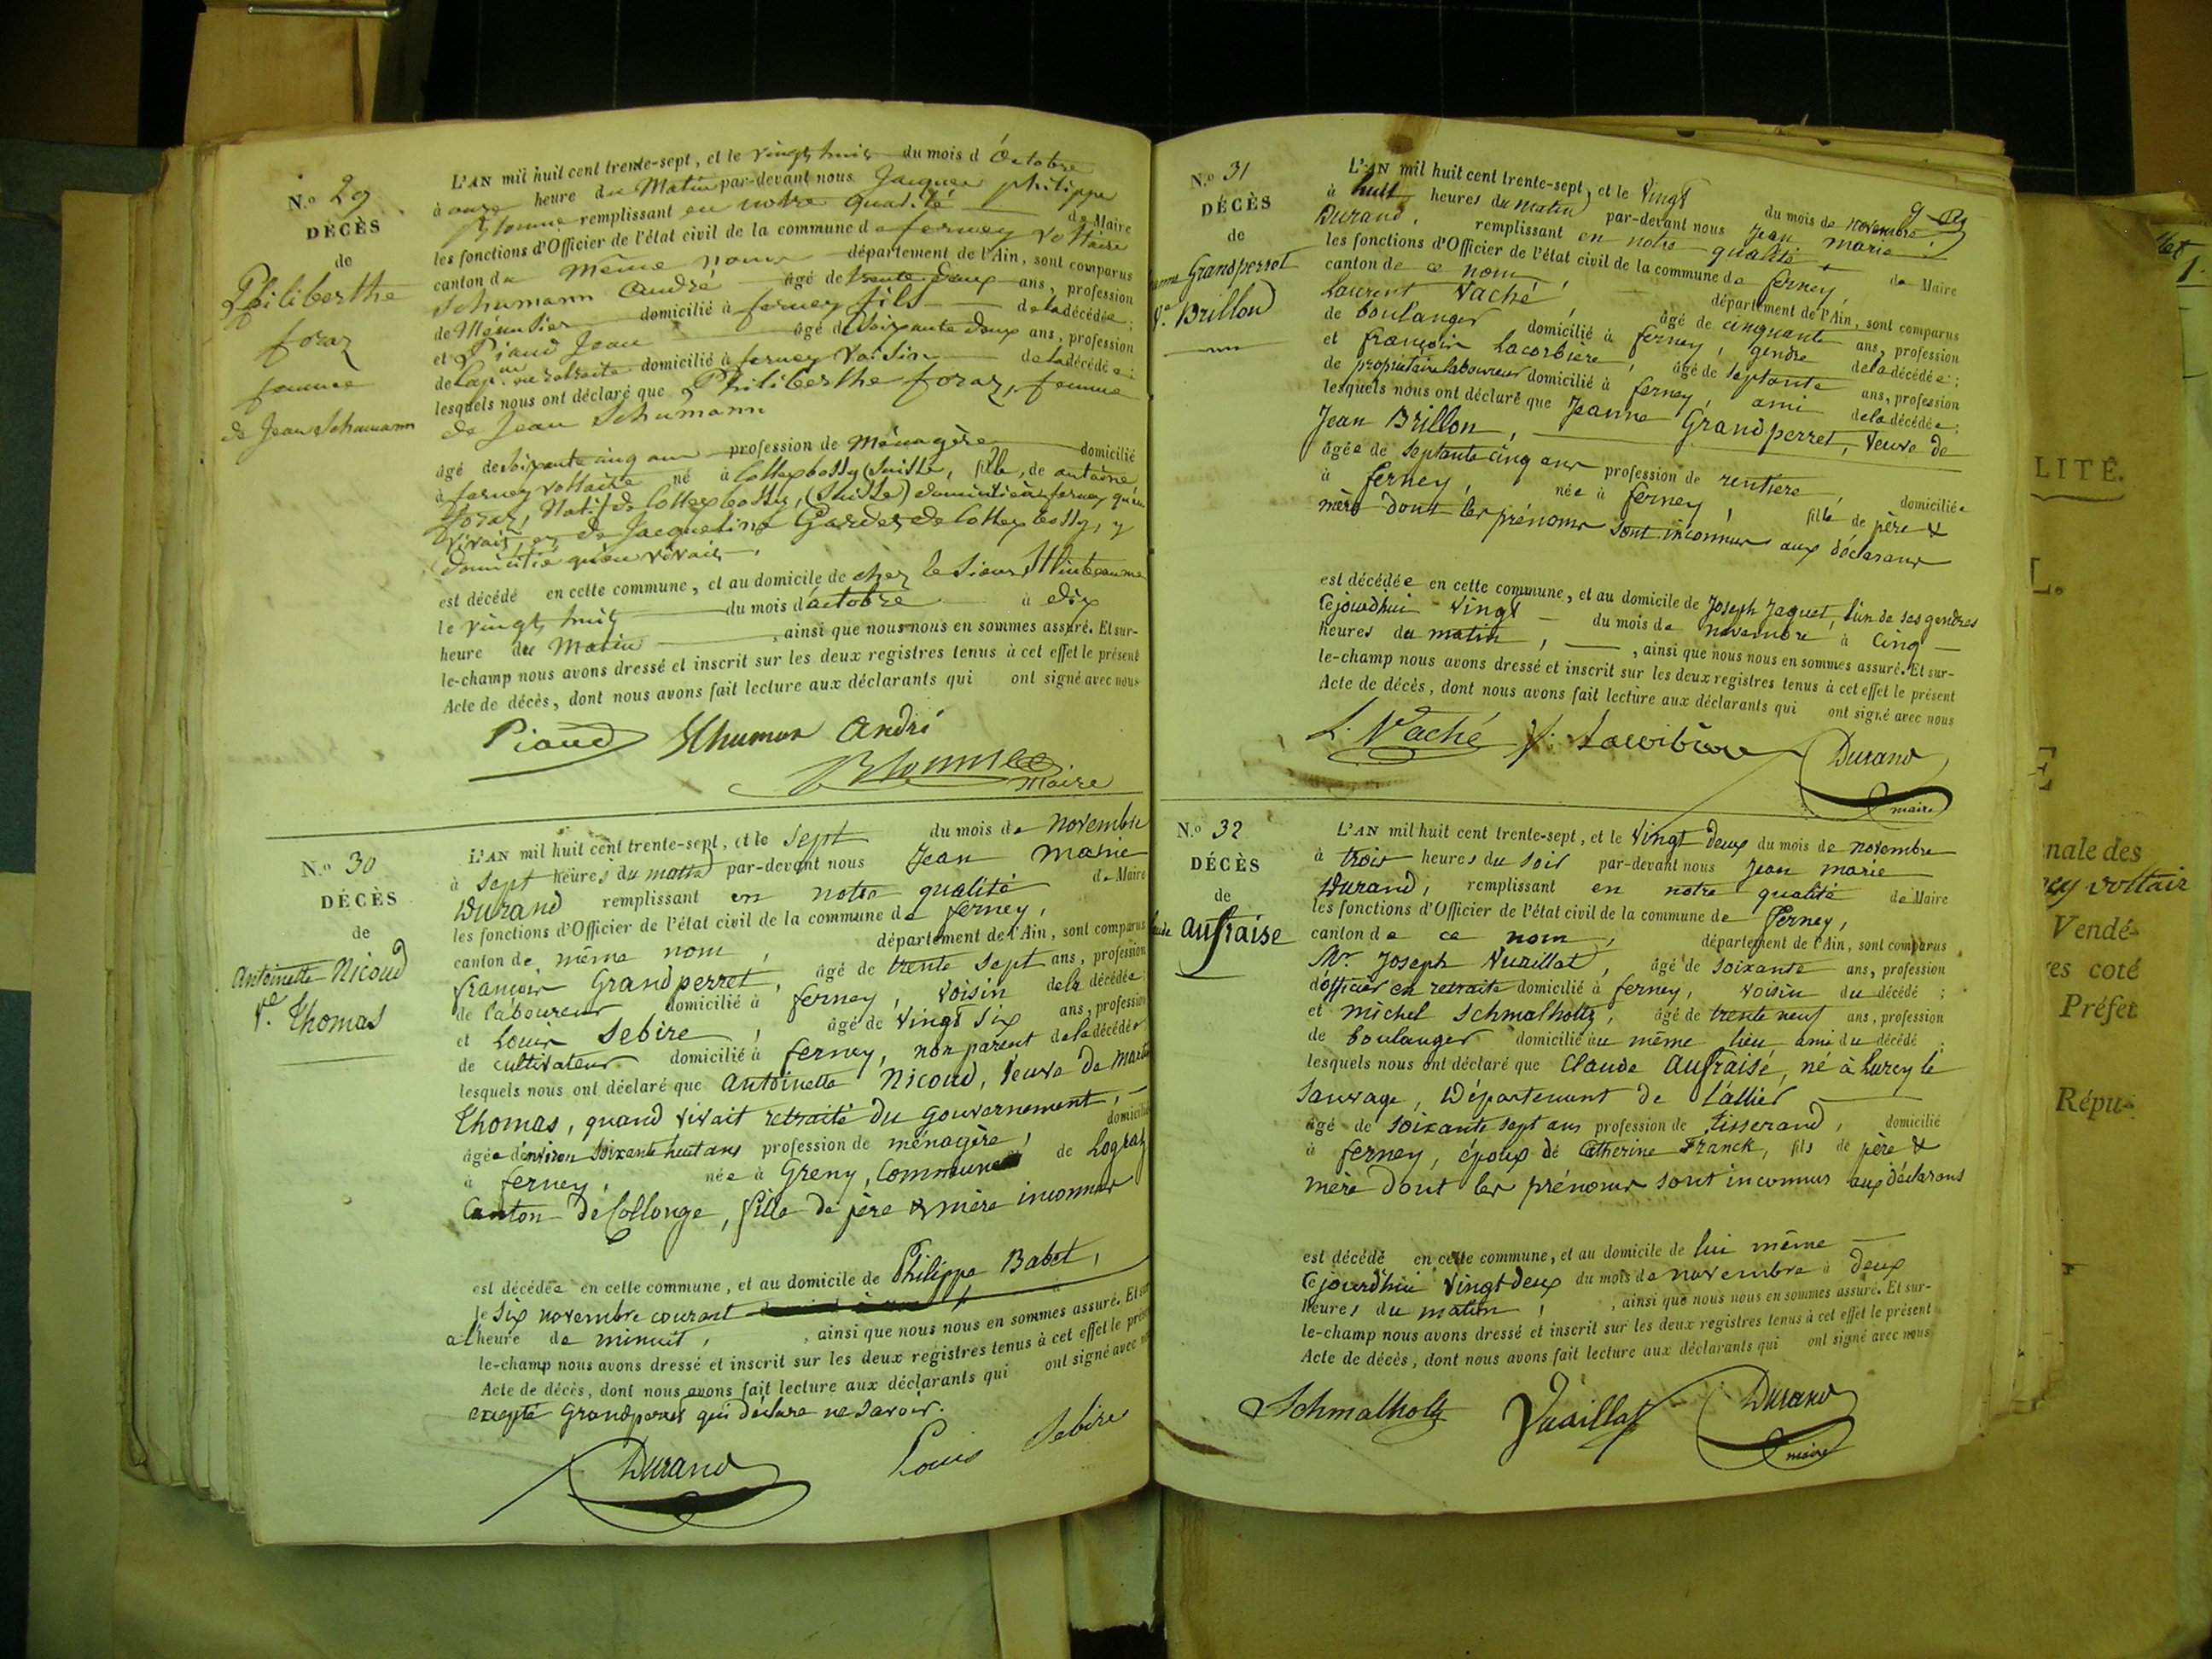 N.o 29
DÉCÈS
de
Philiberthe
foraz
femme
de Jean Schumann
L'AN mil huit cent trente-sept, et le vingt huit du mois d'Octobre
à onze heure du Matin par-devant nous Jacques philippe
remplissant en notre qualité de Maire
les fonctions d'Officier de l'état civil de la commune de ferney Voltaire
canton du même nom département de l'Ain, sont comparus
Schumann André âgé de trente deux ans, profession
de Ménuisier domicilié à ferney fils de la décédée;
et Piaud Jean âgé de soixante deux ans, profession
de Cap.ne en retraite domicilié à ferney Voisin de la décédée;
lesquels nous ont déclaré que Philiberthe foraz, femme
de Jean Schumann
âgé de soixante cinq ans profession de Ménagère domicilié
à ferney voltaire né à Collexbossy (Suisse, fille, de antoine
foraz, Natif de Collex bossy, (Suisse) domicilié à ferney qu'en
vivait, et de Jacqueline de Collex bossy, y
domicilié qu'en vivait.
est décédé en cette commune, et au domicile de chez le Sieur
le vingt huit du mois d'octobre à dix
heure du Matin, ainsi que nous nous en sommes assuré. Et sur-
le-champ nous avons dressé et inscrit sur les deux registres tenus à cet effet le présent
Acte de décès, dont nous avons fait lecture aux déclarants qui ont signé avec nous
Piaud Schuman André
Maire
N.o 30
DÉCÈS
de
Antoinette Nicoud
V.e Thomas
L'AN mil huit cent trente-sept, et le sept du mois de Novembre
à sept heures du matin par-devant nous Jean Marie
Durand remplissant en notre qualité de Maire
les fonctions d'Officier de l'état civil de la commune de ferney,
canton de même nom, département de l'Ain, sont comparus
françois Grandperret, âgé de trente sept ans, profession
de laboureur domicilié à ferney, voisin de la décédée;
et Louis Sebire, âgé de vingt six ans, profession
de cultivateur domicilié à ferney, non parent de la décédée
lesquels nous ont déclaré que Antoinette Nicoud, veuve de
Thomas, quand vivait retraité du Gouvernement,
âgée d'environ soixante huit ans profession de ménagère, domicilié
à ferney, née à Greny, Commune de Lograz
Canton de Collonge, fille de père & mère inconnus
est décédée en cette commune, et au domicile de Philippe Babet,
le six novembre courant
à l'heure de minuit, ainsi que nous nous en sommes assuré. Et sur
le-champ nous avons dressé et inscrit sur les deux registres tenus à cet effet le présent
Acte de décès, dont nous avons fait lecture aux déclarants qui ont signé avec
excepté Grandperret qui déclare ne savoir.
Durand Louis Sebire
N.o 31
DÉCÈS
de
Grandperret
V.e Brillon
L'AN mil huit cent trente-sept, et le vingt du mois de novembre
à huit heures du matin par-devant nous Jean marie
Durand, remplissant en notre qualité de Maire
les fonctions d'Officier de l'état civil de la commune de ferney,
canton de ce nom, département de l'Ain, sont comparus
Laurent Vaché, âgé de cinquante ans, profession
de boulanger domicilié à ferney, gendre de la décédée;
et françois Lacorbière, âgé de septante ans, profession
de propriétaire laboureur domicilié à ferney, ami de la décédée;
lesquels nous ont déclaré que Jeanne Grandperret, veuve de
Jean Brillon,
âgée de septante cinq ans profession de rentière, domiciliée
à ferney, née à ferney, fille de père &
mère dont les prénoms sont inconnus aux déclarans
est décédée en cette commune, et au domicile de Joseph Jaquet, l'un de ses gendres
Cejourdhui vingt du mois de novembre à Cinq
heures du matin, ainsi que nous nous en sommes assuré. Et sur-
le-champ nous avons dressé et inscrit sur les deux registres tenus à cet effet le présent
Acte de décès, dont nous avons fait lecture aux déclarants qui ont signé avec nous
L. Vaché Durand
maire
N.o 32
DÉCÈS
de
Aufraise
L'AN mil huit cent trente-sept, et le vingt deux du mois de novembre
à trois heures du soir par-devant nous Jean marie
Durand, remplissant en notre qualité de Maire
les fonctions d'Officier de l'état civil de la commune de Ferney,
canton de ce nom, département de l'Ain, sont comparus
Mr. Joseph Vuaillat, âgé de soixante ans, profession
d'officier en retraite domicilié à ferney, voisin du décédé;
et michel Schmalholtz, âgé de trente neuf ans, profession
de boulanger domicilié au même lieu ami du décédé;
lesquels nous ont déclaré que Claude Aufraise, né à Lurcy le
Sauvage, Département de L'allier
âgé de soixante sept ans profession de tisserand, domicilié
à ferney, époux de Catherine Franck, fils de père &
mère dont les prénoms sont inconnus aux déclarans
est décédé en cette commune, et au domicile de lui même
Cejourd'hui vingt deux du mois de novembre à deux
heures du matin, ainsi que nous nous en sommes assuré. Et sur-
le-champ nous avons dressé et inscrit sur les deux registres tenus à cet effet le présent
Acte de décès, dont nous avons fait lecture aux déclarants qui ont signé avec nous
Schmalholtz Vuaillat Durand
maire
LITÉ.
L.
E
nale des
ney voltair
Vendé-
res coté
Préfet
Répu-